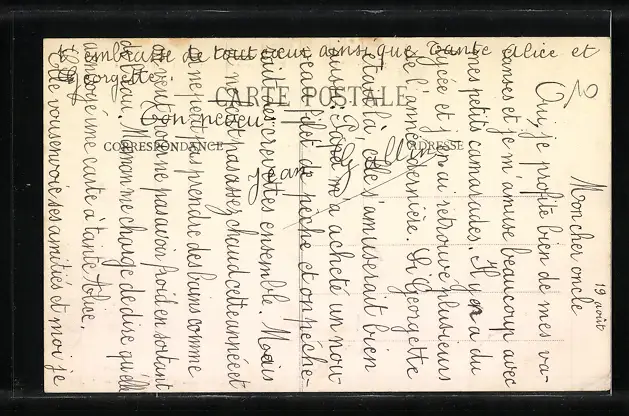 19 août
Mon cher oncle
Oui, je profite bien de mes va-
cances et je m'amuse beaucoup avec
mes petits camarades. Il y en a du
lycée et j'en ai retrouvé plusieurs
de l'année dernière. Si Georgette
était là elle s'amuserait bien
aussi. Papa m'a acheté un nou-
veau filet de pêche et on pêche-
rait des crevettes ensemble. Mais
il ne fait pas assez chaud cette année et
je ne peut pas prendre des bains comme
je veut pour ne pas avoir froid en sortant
de l'eau. Maman me charge de dire qu'elle
a envoyé une carte à tante Alice.
Elle vous envoie ses amitiés et moi je
t'embrasse de tout cœur ainsi que tante Alice et
Georgette.
Ton neveu
Jean
CARTE POSTALE
CORRESPONDANCE
ADRESSE